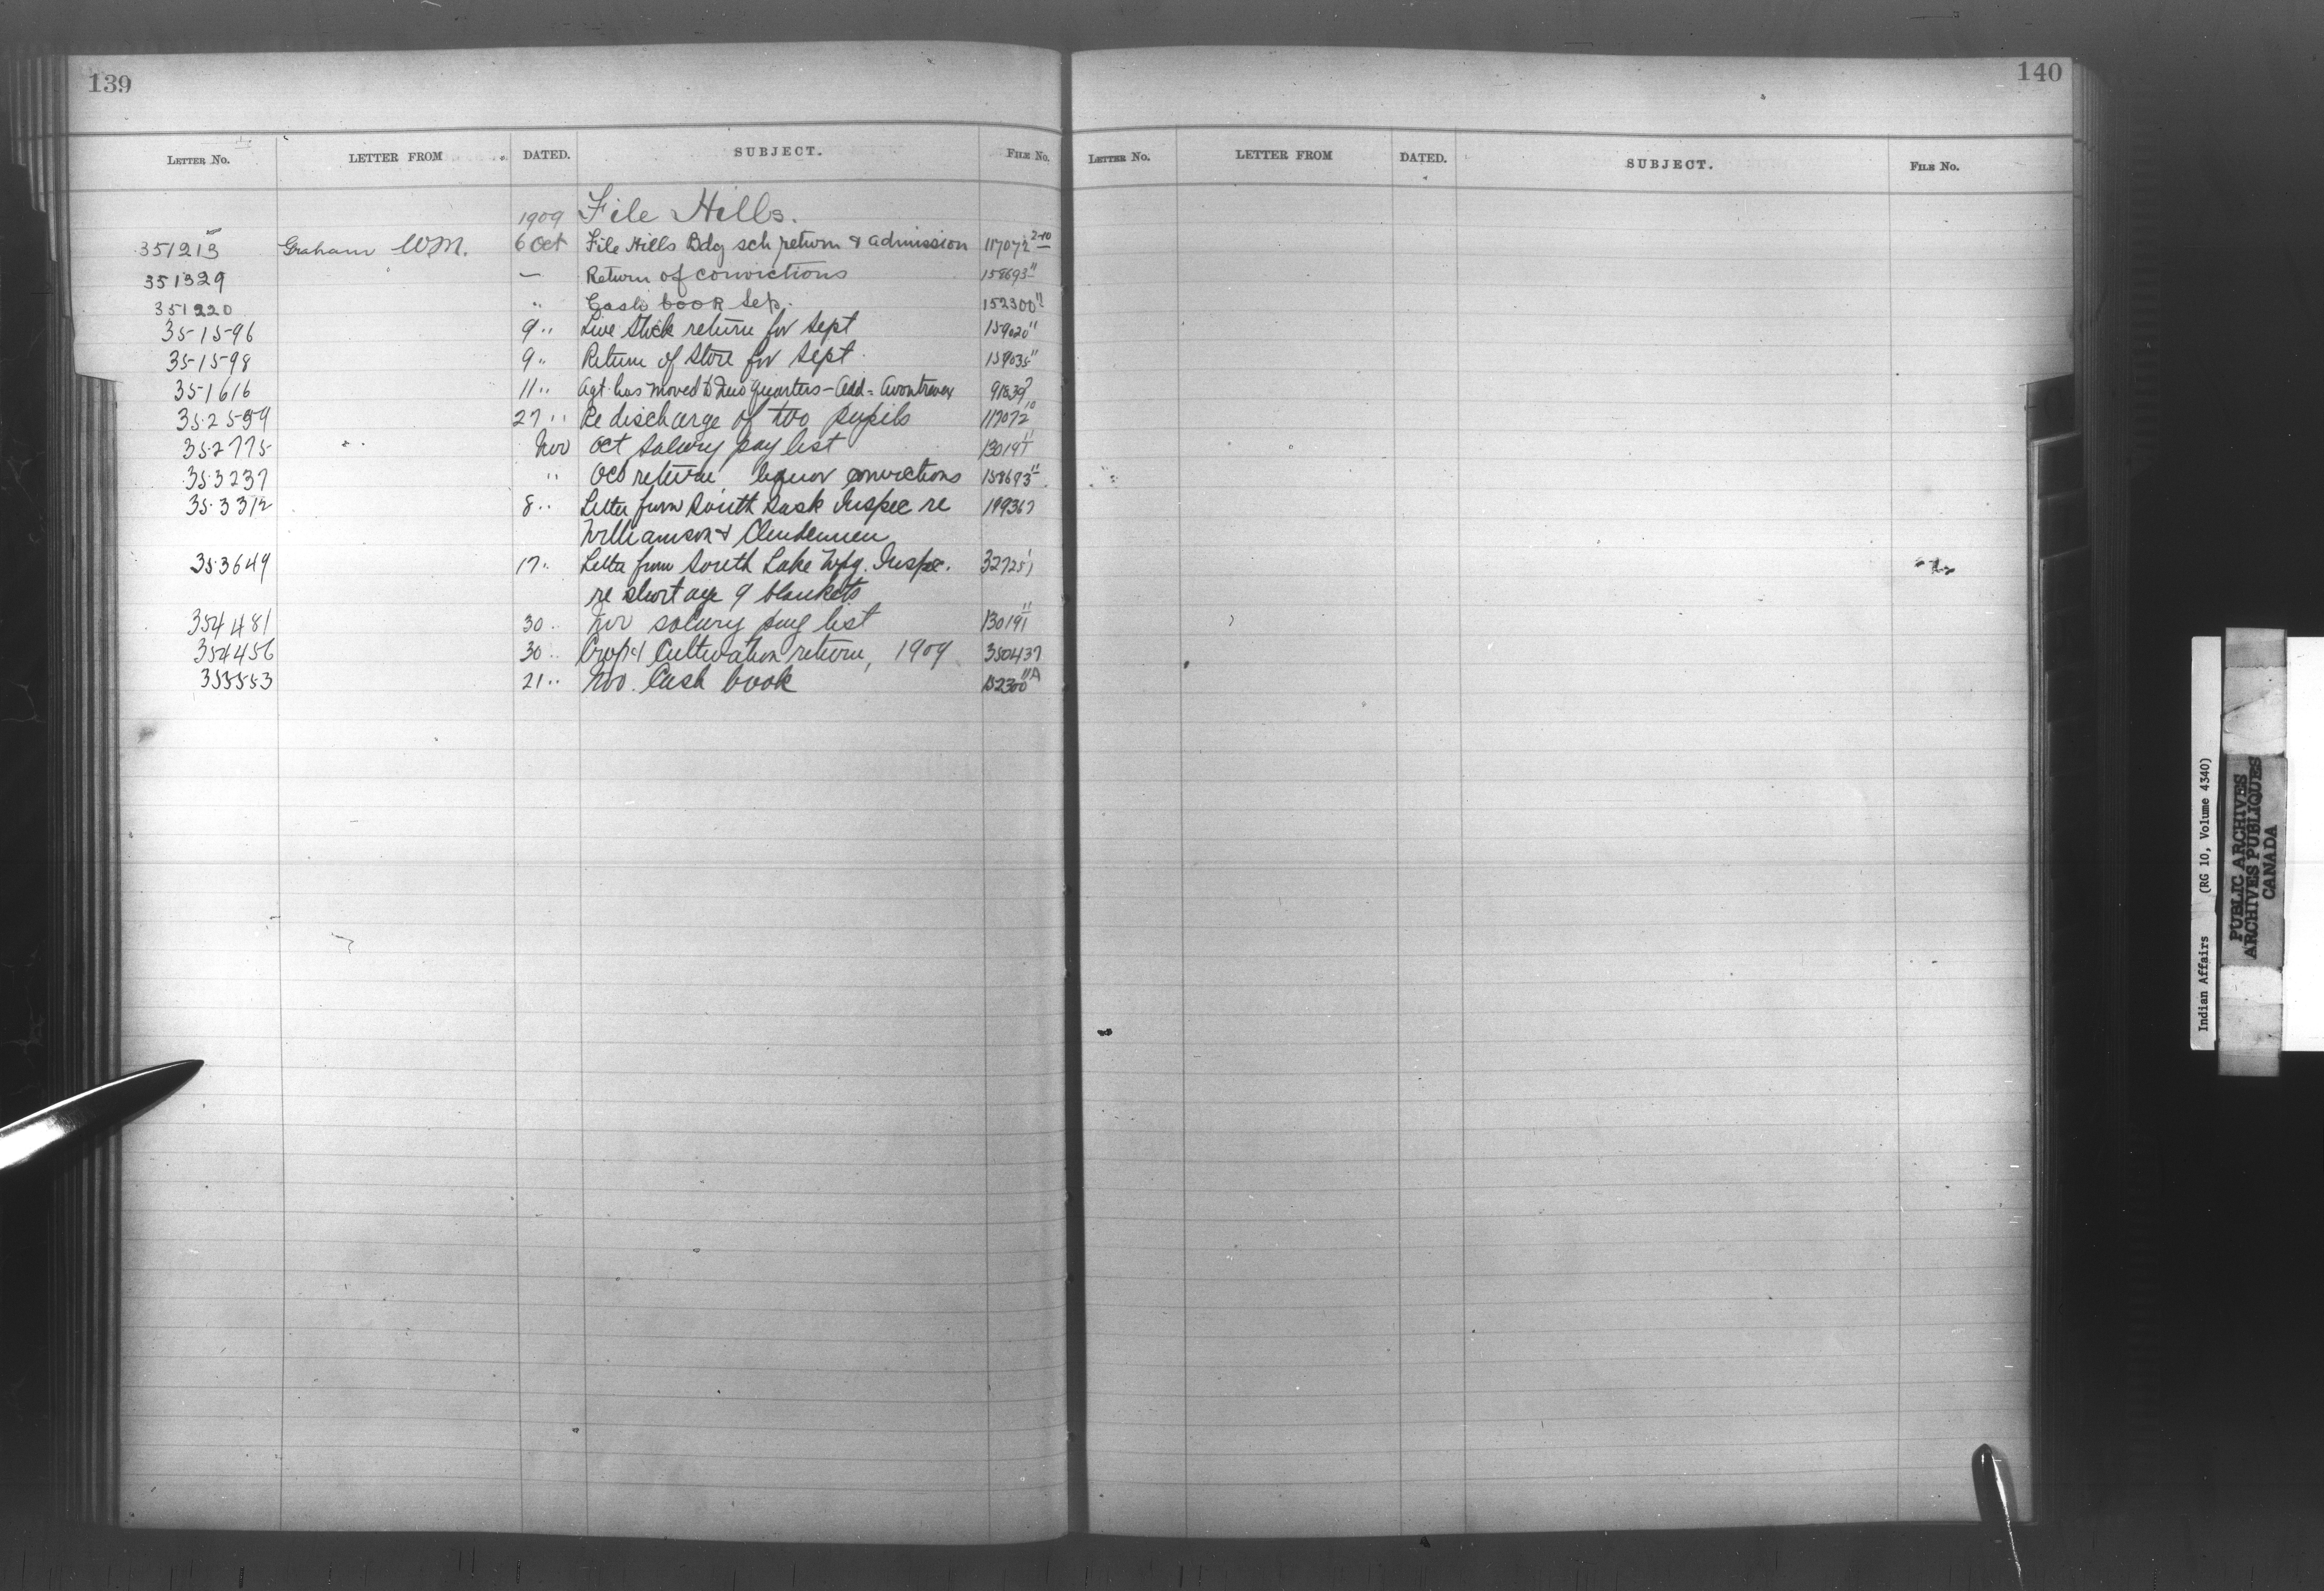 139
LETTER No. LETTER FROM DATED. SUBJECT. FILE No.
1909 File Hills.
351213 Graham W.M. 6 Oct File Hills Bdg sch return & admission 117072 2-10
351329 — Return of convictions 158693 11
351220 " Cash book Sep. 152300 11
351596 9 " Live Stock return for Sept 159020 11
351598 9 " Return of Store for Sept 159035 11
351616 11 " Agt has moved to new quarters - Add = 91839
352599 27 " Re discharge of two pupils 117072 10
352775 " Nov Oct salary pay list 130191 11
353237 " Oct return liquor convictions 158693 11
353312 8 " Letter from South Sask Inspec re
Williamson &
353649 17 " Letter from South Lake Wpg. Inspec.
re shortage 9 blankets
354481 30 " Nov salary pay list 130191 11
354456 30 " Crop & Cultivation return, 1909 350437
353553 21 " Nov. Cash book 152300 11A
140
LETTER No. LETTER FROM DATED. SUBJECT. FILE No.
Indian Affairs (RG 10, Volume 4340)
PUBLIC ARCHIVES
ARCHIVES PUBLIQUES
CANADA